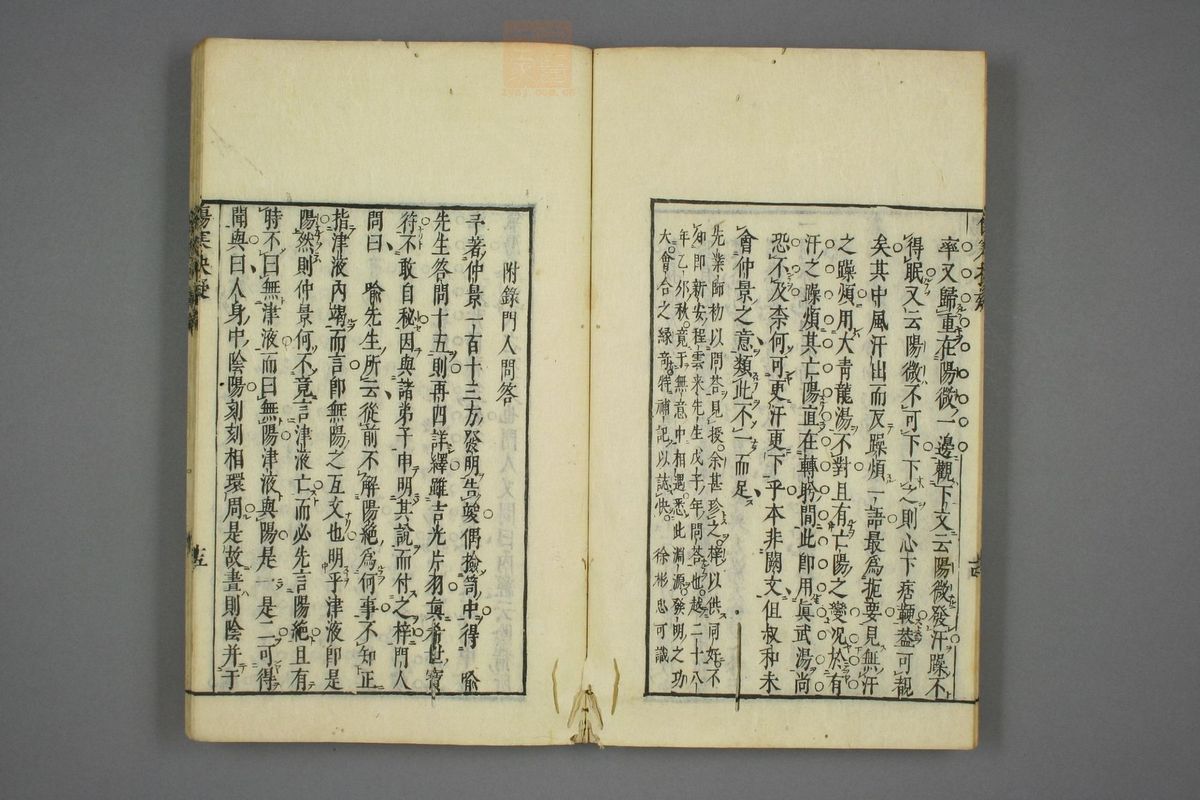 率又歸重在陽微一邊觀下文云陽微發汗躁不
得眠又云陽微不可下下之則心下痞鞕葢可覩
矣其中風汗出而反躁煩一語最為扼要見無汗
之躁煩用大青龍湯不對且有亡陽之變况於有
汗之躁煩其亡陽直在轉盻間此即用眞武湯尚
恐不及柰何可更汗更下乎本非闕文但叔和未
會仲景之意類此不一而足
先業師初以問荅見授余甚珍之梓以供同好不
知即新安程雲来先生戊子年問荅也越二十八
年乙夘秋竟于無意中相遇悉此淵源發明之功
大會合之緣竒特補記以誌快 徐彬忠可識
附錄門人問答
予著仲景一百十三方發明告竣偶撿笥中得 喻
先生答問十五則再四詳繹雖吉光片羽眞希世寳
符不敢自秘因與諸弟子申明其說而付之梓門人
問曰 喻先生所云從前不解陽絶為何事不知正
指津液內竭而言即無陽之互文也明乎津液即是
陽然則仲景何不竟言津液亡而必先言陽絶且有
時不曰無津液而曰無陽津液與陽是一是二可得
聞與曰人身中陰陽刻刻相環周是故晝則陰并于
傷寒抉疑
十五